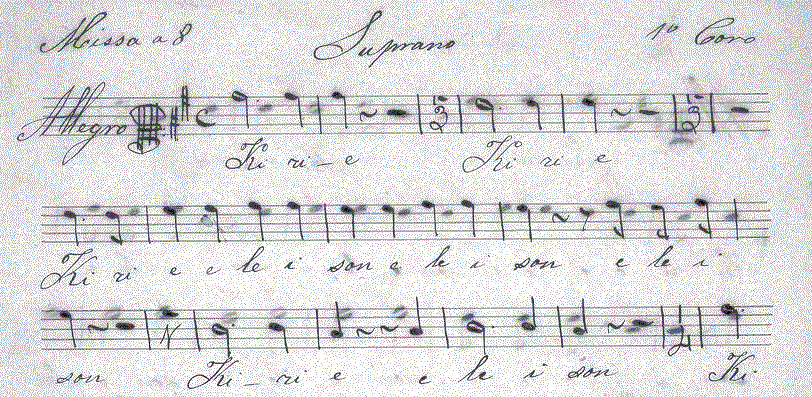 Missa a 8 Suprano 1º Coro
Allegro
Ki ri - e Ki ri e
Ki ri e e le i son e le i son e le i
son Ki - ri e e le i son Ki